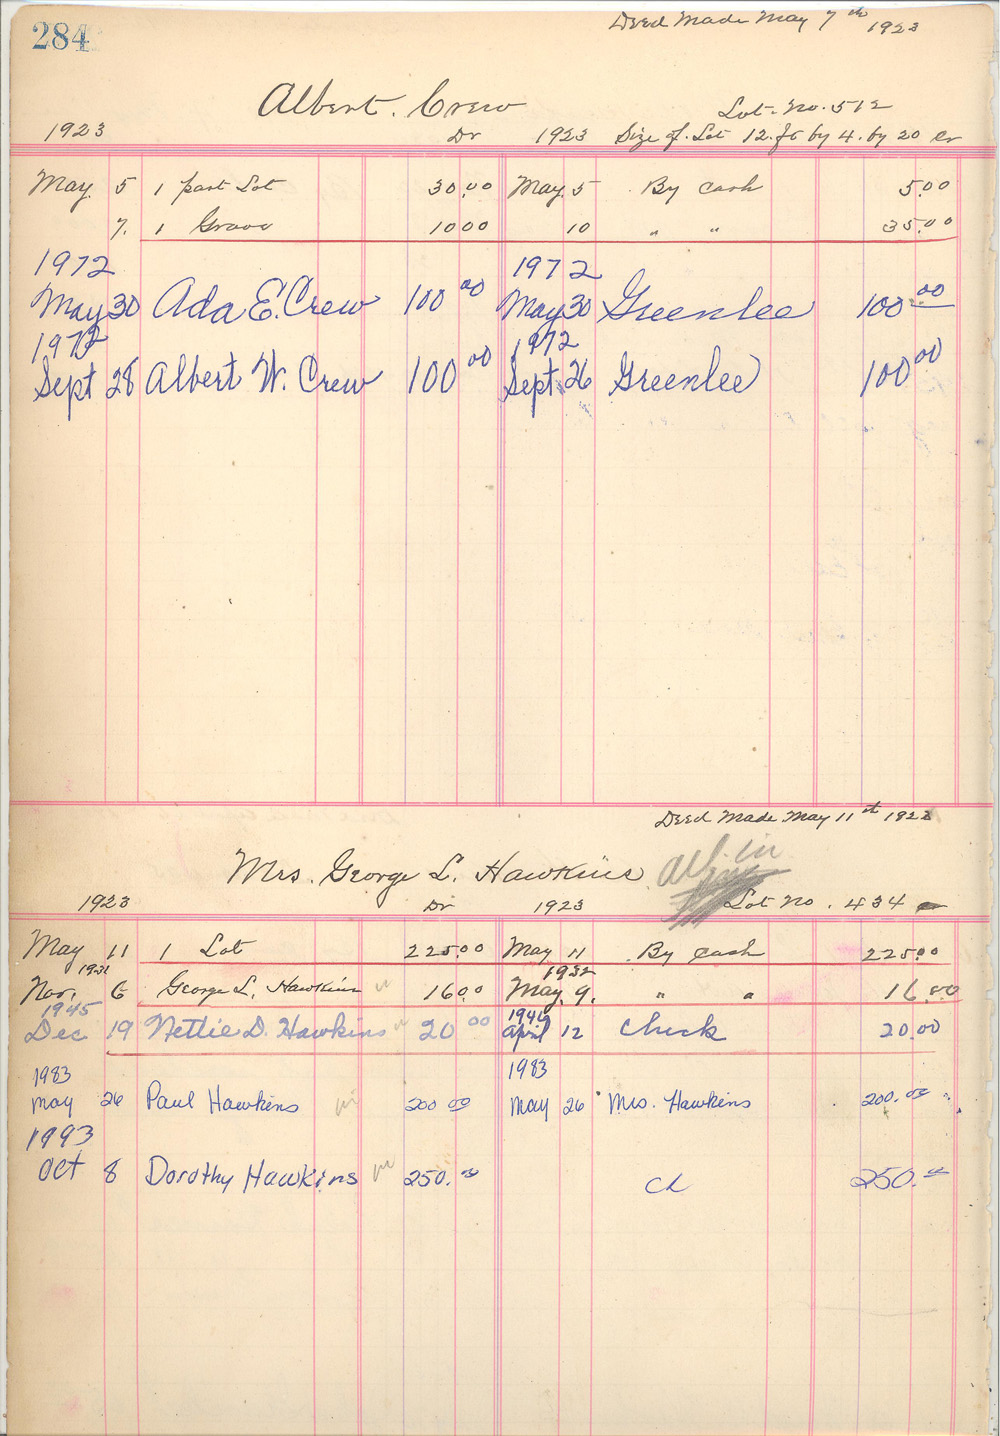 284
Deed Made May 7th 1923
Albert. Crew
Lot. No. 512
1923 Dr 1923 Size of. Lot 12. ft by 4. by 20 Cr
May. 5 1 part Lot 30.00 May. 5 By cash 5.00
7. 1 Grave 10 00 10 " " 35.00
1972 1972
May 30 Ada E. Crew 100 00 May 30 Greenlee 100 00
1972 1972
Sept 28 Albert W. Crew 100 00 Sept 26 Greenlee 100 00
Deed Made May 11th 1923
Mrs. George L. Hawkins. all in
1923 Dr 1923 Lot No. 434
May 11 1 Lot 225.00 May 11 By cash 225.00
1931 1932
Nov. 6 George L. Hawkins in 16 00 May. 9. " " 16.00
1945 1946
Dec 19 Nettie D. Hawkins in 20 00 April 12 Check 20.00
1983 1983
May 26 Paul Hawkins in 200 00 May 26 Mrs. Hawkins 200.00
1993
Oct 8 Dorothy Hawkins in 250.00 ck 250.00